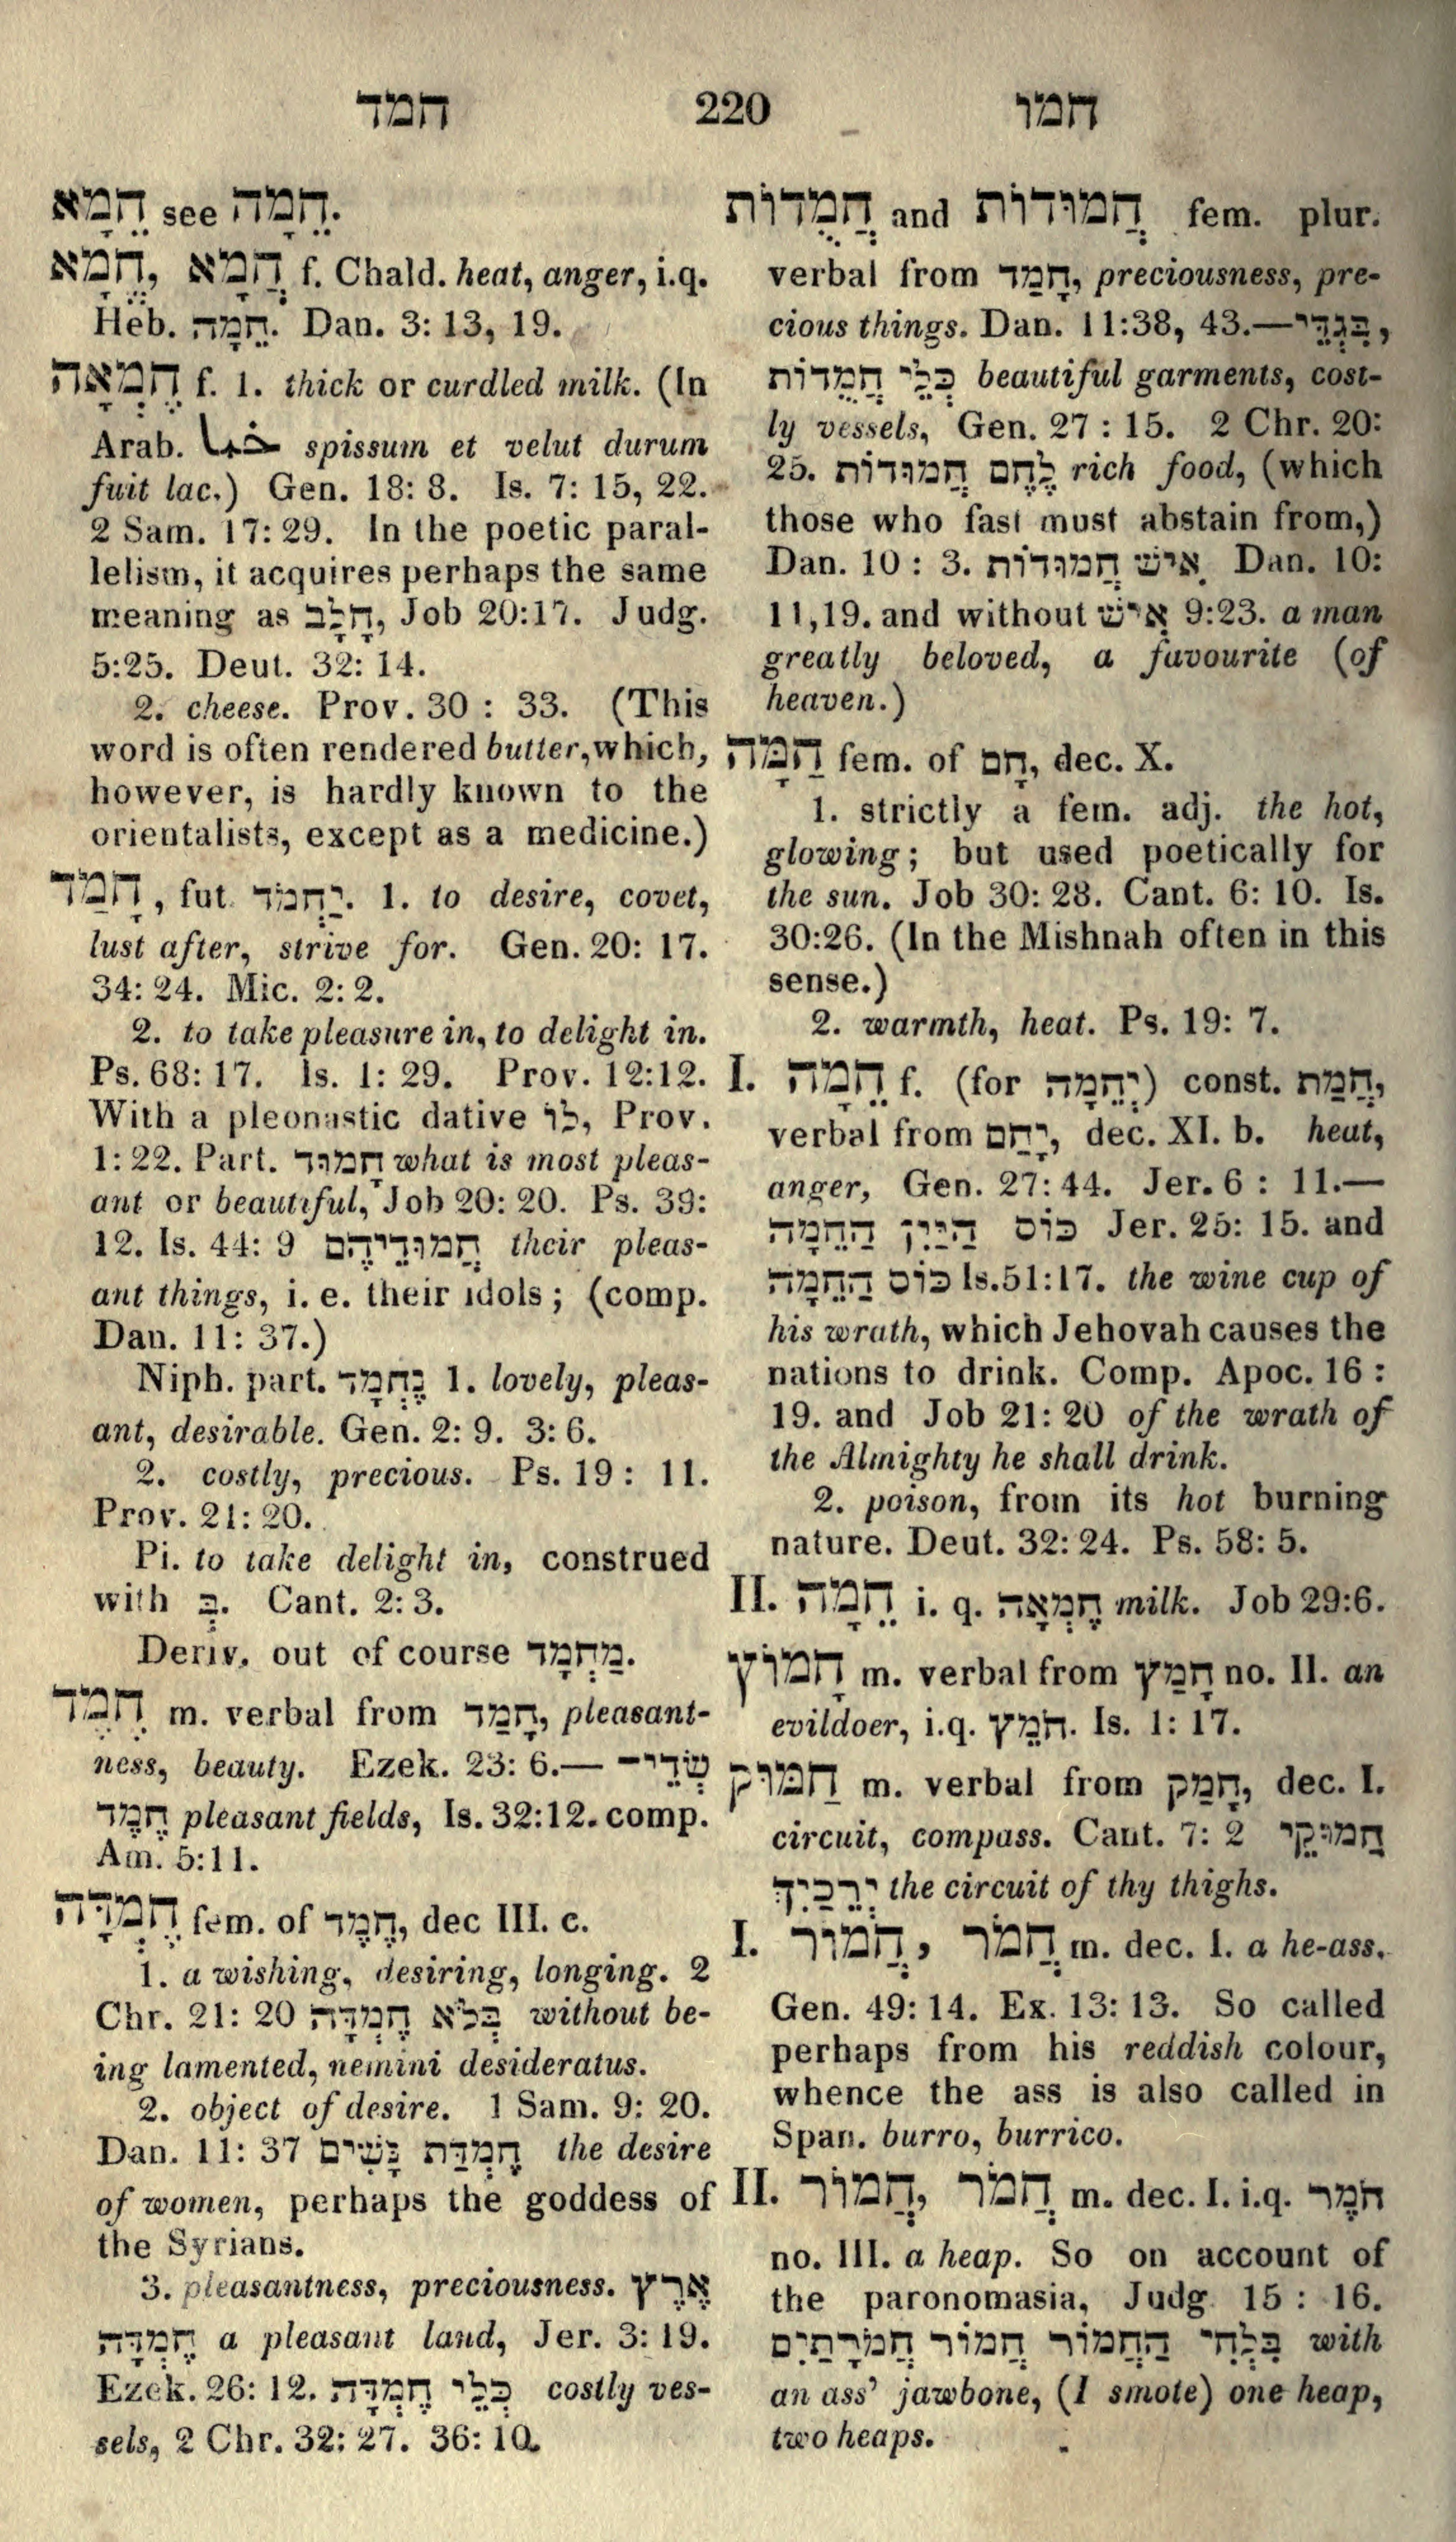 חמד 220 חמו
חֵמָא see חֵמָה.
חֱמָא, חֲמָא f. Chald. heat, anger, i.q.
Heb. חֵמָה. Dan. 3: 13, 19.
חֶמְאָה f. 1. thick or curdled milk. (In
Arab. spissum et velut durum
fuit lac.) Gen. 18: 8. Is. 7: 15, 22.
2 Sam. 17: 29. In the poetic paral-
lelism, it acquires perhaps the same
meaning as חָלָב, Job 20:17. Judg.
5:25. Deut. 32: 14.
2. cheese. Prov. 30 : 33. (This
word is often rendered butter, which,
however, is hardly known to the
orientalists, except as a medicine.)
חָמַד, fut. יַחְמֹד. 1. to desire, covet,
lust after, strive for. Gen. 20: 17.
34: 24. Mic. 2: 2.
2. to take pleasure in, to delight in.
Ps. 68: 17. Is. 1: 29. Prov. 12:12.
With a pleonastic dative לוֹ, Prov.
1: 22. Part. חָמוּד what is most pleas-
ant or beautiful, Job 20: 20. Ps. 39:
12. Is. 44: 9 חֲמוּדֵיהֶם their pleas-
ant things, i. e. their idols; (comp.
Dan. 11: 37.)
Niph. part. נֶחְמָד 1. lovely, pleas-
ant, desirable. Gen. 2: 9. 3: 6.
2. costly, precious. Ps. 19: 11.
Prov. 21: 20.
Pi. to take delight in, construed
with בְּ. Cant. 2: 3.
Deriv. out of course מַחְמָד.
חֶמֶד m. verbal from חָמַד, pleasant-
ness, beauty. Ezek. 23: 6.— שְׂדֵי־
חֶמֶד pleasant fields, Is. 32:12. comp.
Am. 5:11.
חֶמְדָּה fem. of חֶמֶד, dec III. c.
1. a wishing, desiring, longing. 2
Chr. 21: 20 בְּלֹא חֶמְדָּה without be-
ing lamented, nemini desideratus.
2. object of desire. 1 Sam. 9: 20.
Dan. 11: 37 חֶמְדַּת נָשִׁים the desire
of women, perhaps the goddess of
the Syrians.
3. pleasantness, preciousness. אֶרֶץ
חֶמְדָּה a pleasant land, Jer. 3: 19.
Ezek. 26: 12. כְּלֵי חֶמְדָּה costly ves-
sels, 2 Chr. 32: 27. 36: 10.
חֲמֻדוֹת and חֲמוּדוֹת fem. plur.
verbal from חָמַד, preciousness, pre-
cious things. Dan. 11:38, 43.—בִּגְדֵי,
כְּלֵי חֲמֻדוֹת beautiful garments, cost-
ly vessels, Gen. 27 : 15. 2 Chr. 20:
25. לֶחֶם חֲמוּדוֹת rich food, (which
those who fast must abstain from,)
Dan. 10 : 3. אִישׁ חֲמוּדוֹת Dan. 10:
11,19. and without אִישׁ 9:23. a man
greatly beloved, a favourite (of
heaven.)
חַמָּה fem. of חָם, dec. X.
1. strictly a fem. adj. the hot,
glowing; but used poetically for
the sun. Job 30: 28. Cant. 6: 10. Is.
30:26. (In the Mishnah often in this
sense.)
2. warmth, heat. Ps. 19: 7.
I. חֵמָה f. (for יְחֵמָה) const. חֲמַת,
verbal from יָחַם, dec. XI. b. heat,
anger, Gen. 27: 44. Jer. 6 : 11.—
כּוֹס הַיַּיִן הַחֵמָה Jer. 25: 15. and
כּוֹס הַחֵמָה Is.51:17. the wine cup of
his wrath, which Jehovah causes the
nations to drink. Comp. Apoc. 16 :
19. and Job 21: 20 of the wrath of
the Almighty he shall drink.
2. poison, from its hot burning
nature. Deut. 32: 24. Ps. 58: 5.
II. חֵמָה i. q. חֶמְאָה milk. Job 29:6.
חָמוֹץ m. verbal from חָמַץ no. II. an
evildoer, i.q. חֹמֵץ. Is. 1: 17.
חַמּוּק m. verbal from חָמַק, dec. I.
circuit, compass. Cant. 7: 2 חַמּוּקֵי
יְרֵכַיִךְ the circuit of thy thighs.
I. חֲמוֹר, חֲמֹר m. dec. I. a he-ass.
Gen. 49: 14. Ex. 13: 13. So called
perhaps from his reddish colour,
whence the ass is also called in
Span. burro, burrico.
II. חֲמוֹר, חֲמֹר m. dec. I. i.q. חֹמֶר
no. III. a heap. So on account of
the paronomasia, Judg. 15 : 16.
בִּלְחִי הַחֲמוֹר חֲמוֹר חֲמֹרָתַיִם with
an ass' jawbone, (I smote) one heap,
two heaps.